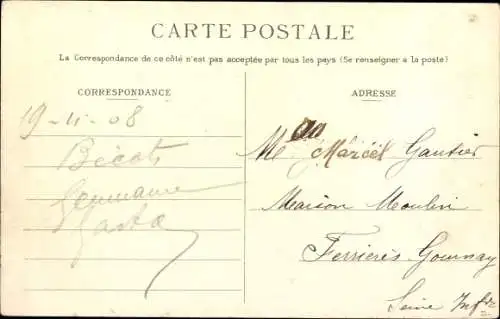 CARTE POSTALE
La Correspondance de ce côté n'est pas acceptée par tous les pays (Se renseigner à la poste)
CORRESPONDANCE
19-11-08
Bécots
Germaine
ADRESSE
M Marcel Gautier
Maison Moulin
Ferrières Gournay
Seine Infre